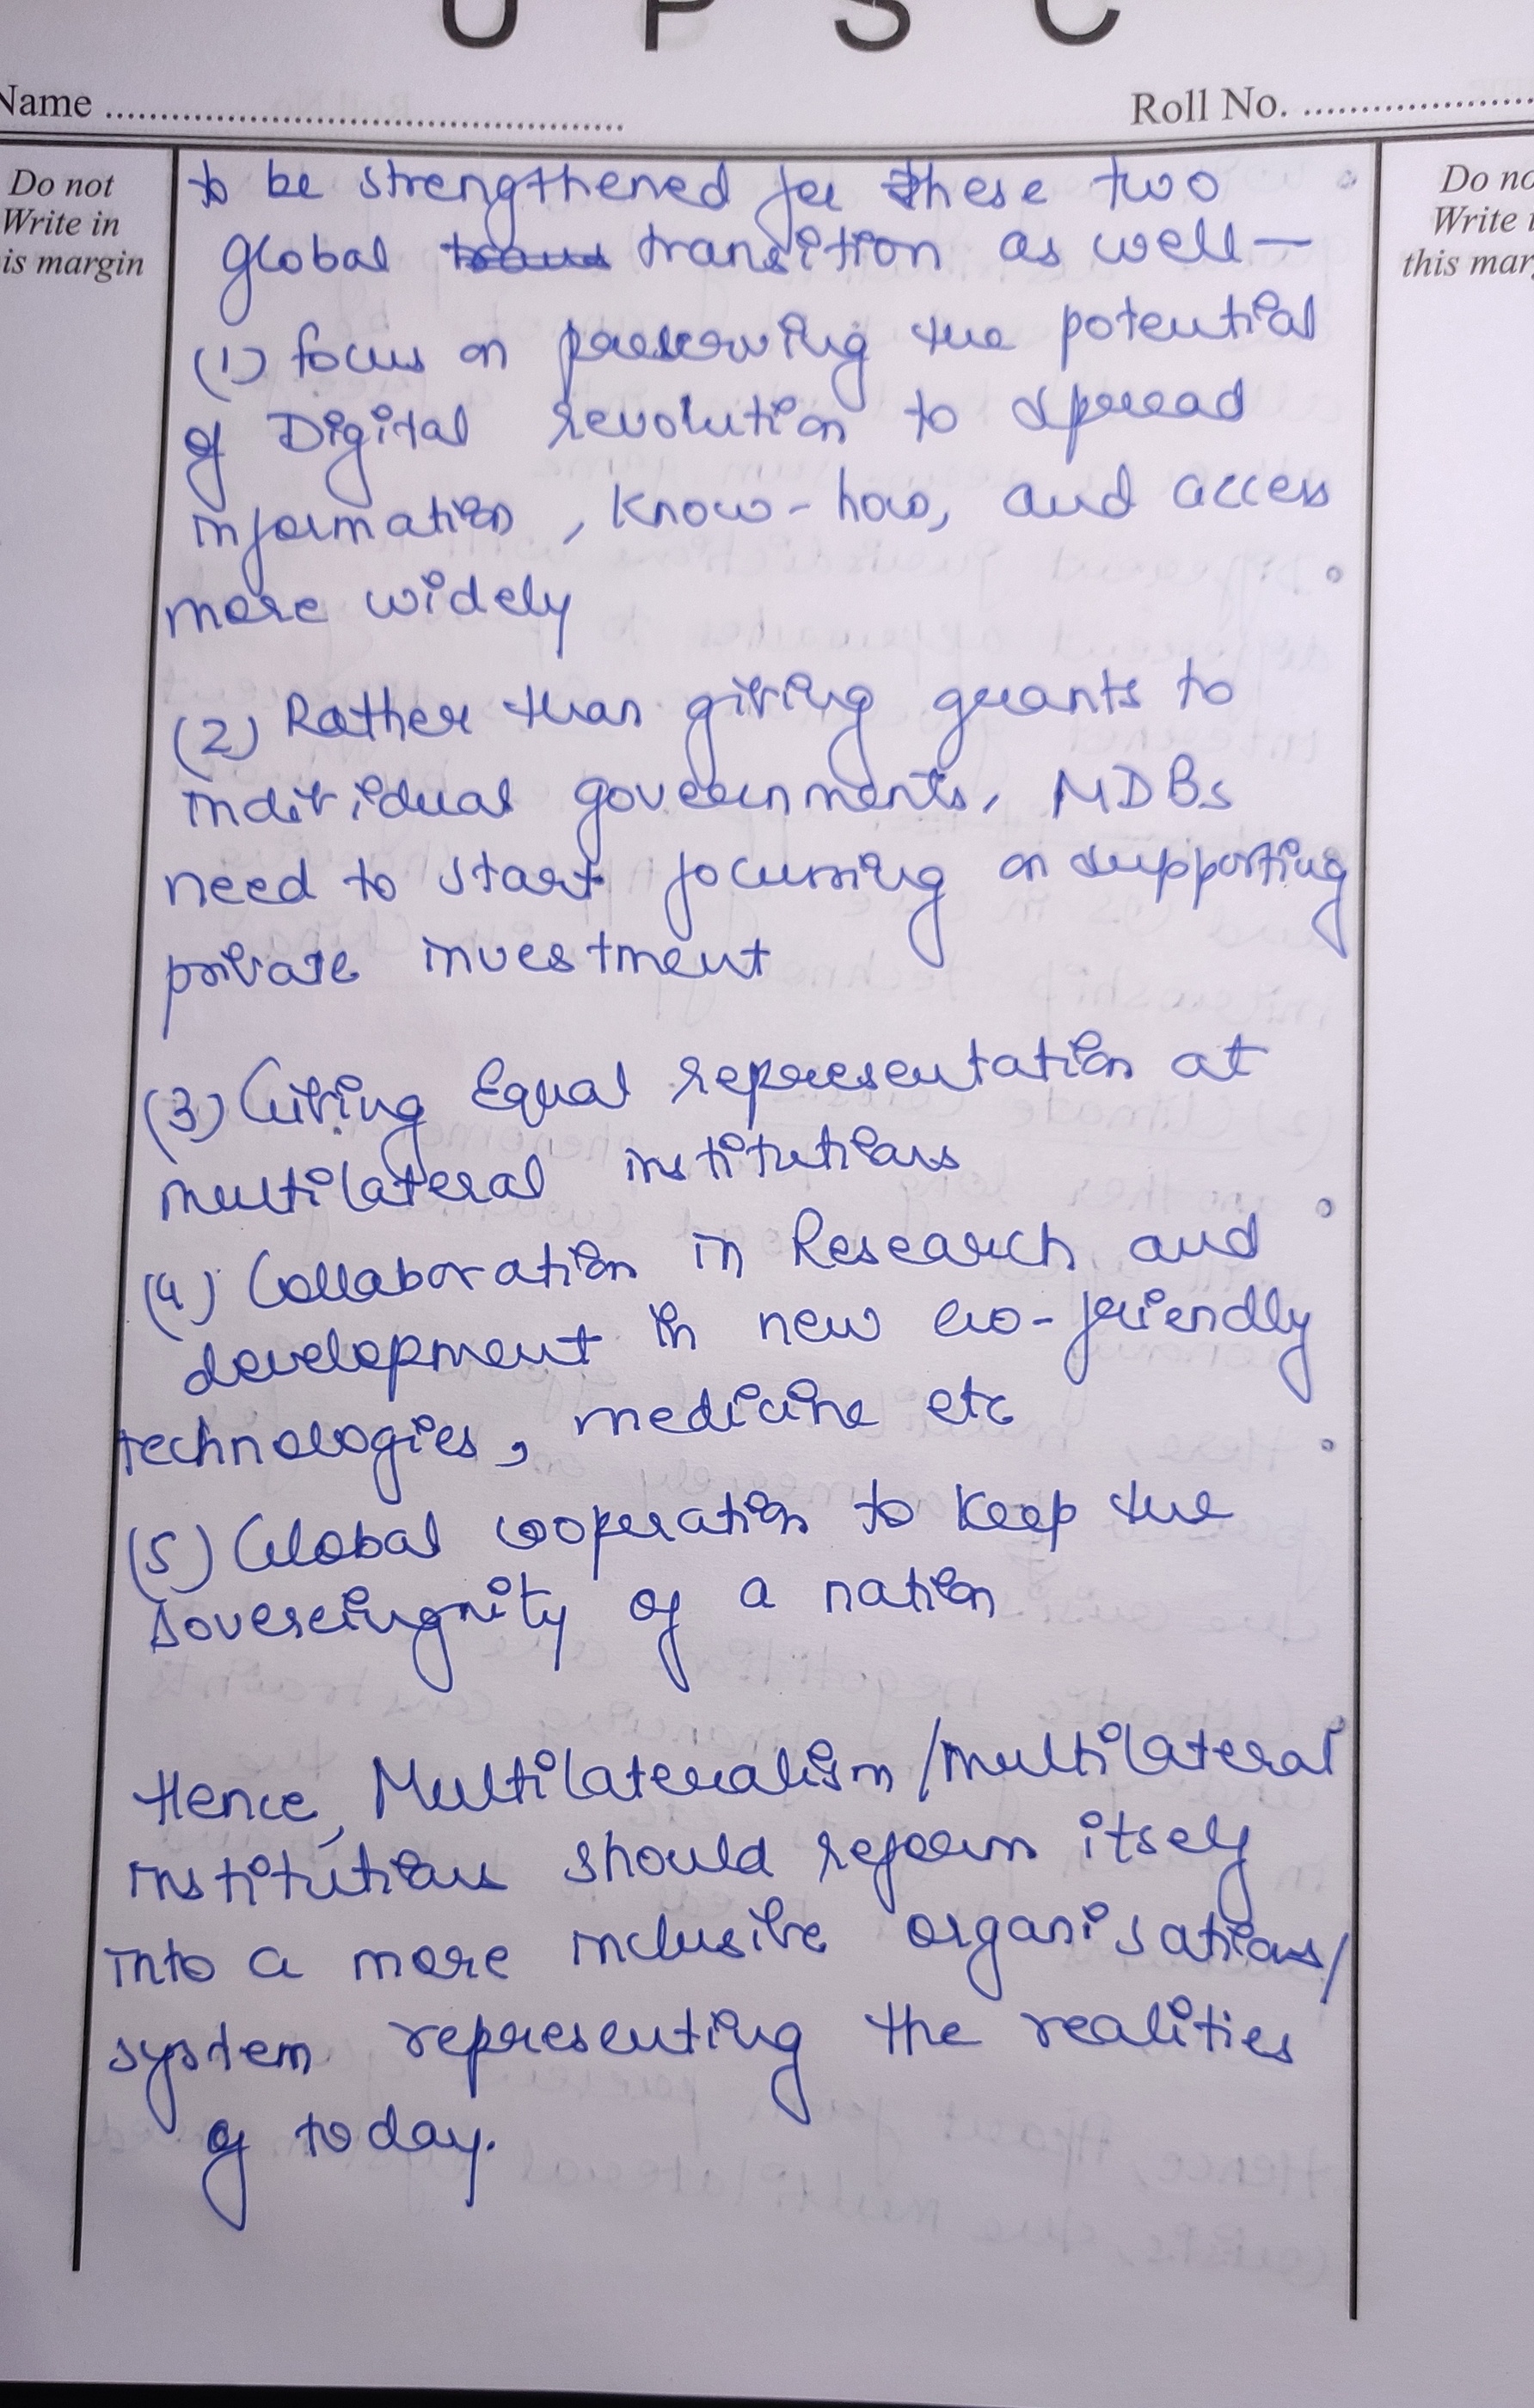 U P S C
Name ..........
Roll No. ..........
Do not
Write in
is margin
Do no
Write i
this mar
to be strengthened for these two
global transition as well—
(1) focus on preserving the potential
of Digital revolution to spread
information, know-how, and access
more widely
(2) Rather than giving grants to
individual governments, MDBs
need to start focussing on supporting
private investment
(3) Giving Equal representation at
multilateral institutions
(4) Collaboration in Research and
development in new eco-friendly
technologies, medicine etc
(5) Global cooperation to keep the
sovereingnity of a nation
Hence, Multilateralism/multilateral
institutions should reform itself
into a more inclusive organisations/
system representing the realities
of today.